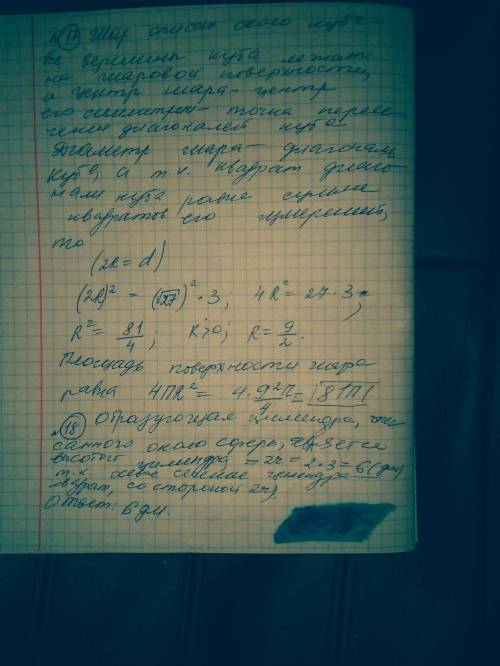 № 17 Шар описан около куба -
все вершины куба лежат
на шаровой поверхности,
а центр шара - центр
его симметрии - точка пересе-
чения диагоналей куба
Диаметр шара - диагональ
куба, а т.к. квадрат диаго-
нали куба равен сумме
квадратов его измерений,
то
(2R = d)
(2R)² = (√27)² · 3; 4R² = 27 · 3;
R² = 81/4; R>0; R = 9/2.
Площадь поверхности шара
равна 4ПR² = 4 · 9²П/4 = 81П
№ 18 Образующая цилиндра, опи
санного около сферы, является
высотой цилиндра = 2r = 2 · 3 = 6 (дм)
т.к. осевое сечение цилиндра
квадрат, со стороной 2r)
Ответ: 6 дм.